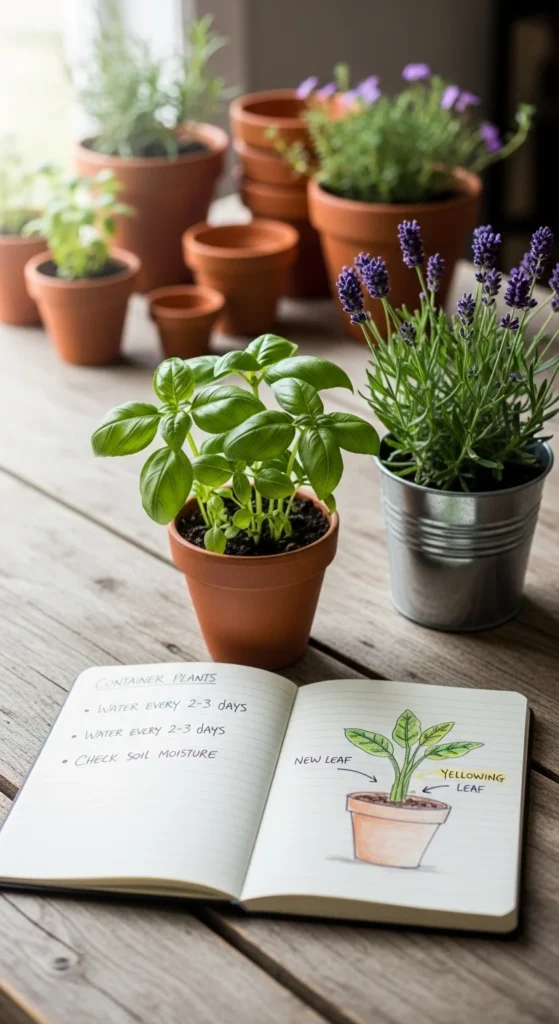 CONTAINER PLANTS
• WATER EVERY 2-3 DAYS
• WATER EVERY 2-3 DAYS
• CHECK SOIL MOISTURE
NEW LEAF
YELLOWING
LEAF